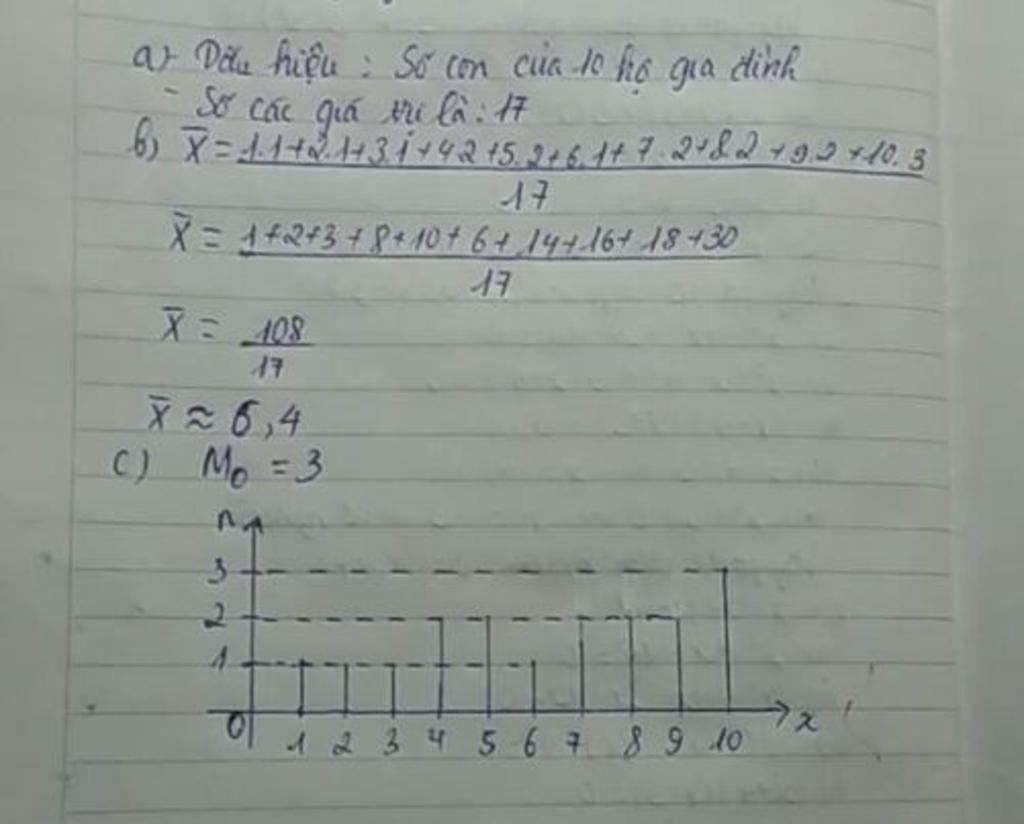 a) Dấu hiệu : Số con của 10 hộ gia đình
- Số các giá trị là : 17
b) X̄ = 1.1+2.1+3.1+4.2+5.2+6.1+7.2+8.2+9.2+10.3
17
X̄ = 1+2+3+8+10+6+14+16+18+30
17
X̄ = 108
17
X̄ ≈ 6,4
c) M₀ = 3
n
3
2
1
0 1 2 3 4 5 6 7 8 9 10 x